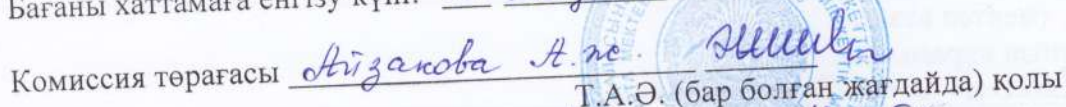 Бағаны хаттамаға енгізу күні:
Комиссия төрағасы Айзакова А.ж.
Т.А.Ә. (бар болған жағдайда) қолы